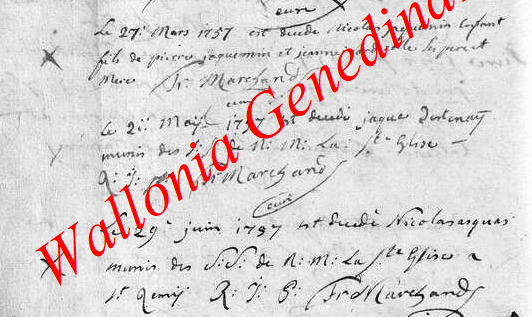 curé
Le 27e Mars 1757 est decedé Nicolas Jaquemin Enfant
fils de pierre jaquemin et jeanne
Mere Fr Marchand
curé
Le 21e Maij 1757 est decedé jaque
munis des S: S: de N: M: La Ste Glise
R: J: Fr Marchand
curé
Le 29e juin 1757 est decedé Nicolas
munis des S: S: de N: M: La Ste Glise a
St Remij R: J: P: Fr Marchand
Wallonia Genedinant